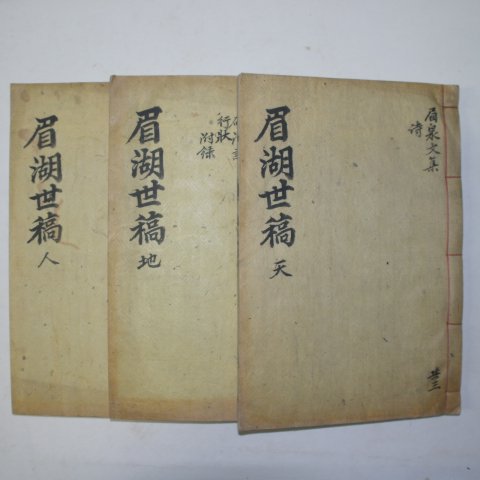 眉湖世稿 天
眉泉文集
詩
共三
眉湖世稿 地
行狀
附錄
眉湖世稿 人